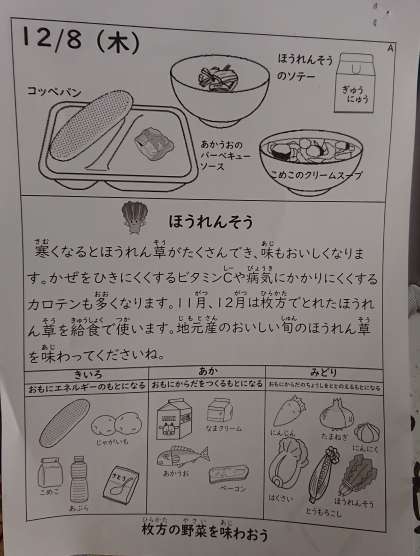 12/8（木）
A
ほうれんそう
のソテー
ぎゅう
にゅう
コッペパン
あかうおの
バーベキュー
ソース
こめこのクリームスープ
ほうれんそう
寒くなるとほうれん草がたくさんでき、味もおいしくなりま
す。かぜをひきにくくするビタミンCや病気にかかりにくくする
カロテンも多くなります。11月、12月は枚方でとれたほうれ
ん草を給食で使います。地元産のおいしい旬のほうれん草
を味わってくださいね。
きいろ
おもにエネルギーのもとになる
あか
おもにからだをつくるもとになる
みどり
おもにからだのちょうしをととのえるもとになる
じゃがいも
こめこ
あぶら
さとう
なまクリーム
あかうお
ベーコン
にんじん
たまねぎ
にんにく
はくさい
とうもろこし
ほうれんそう
枚方の野菜を味わおう